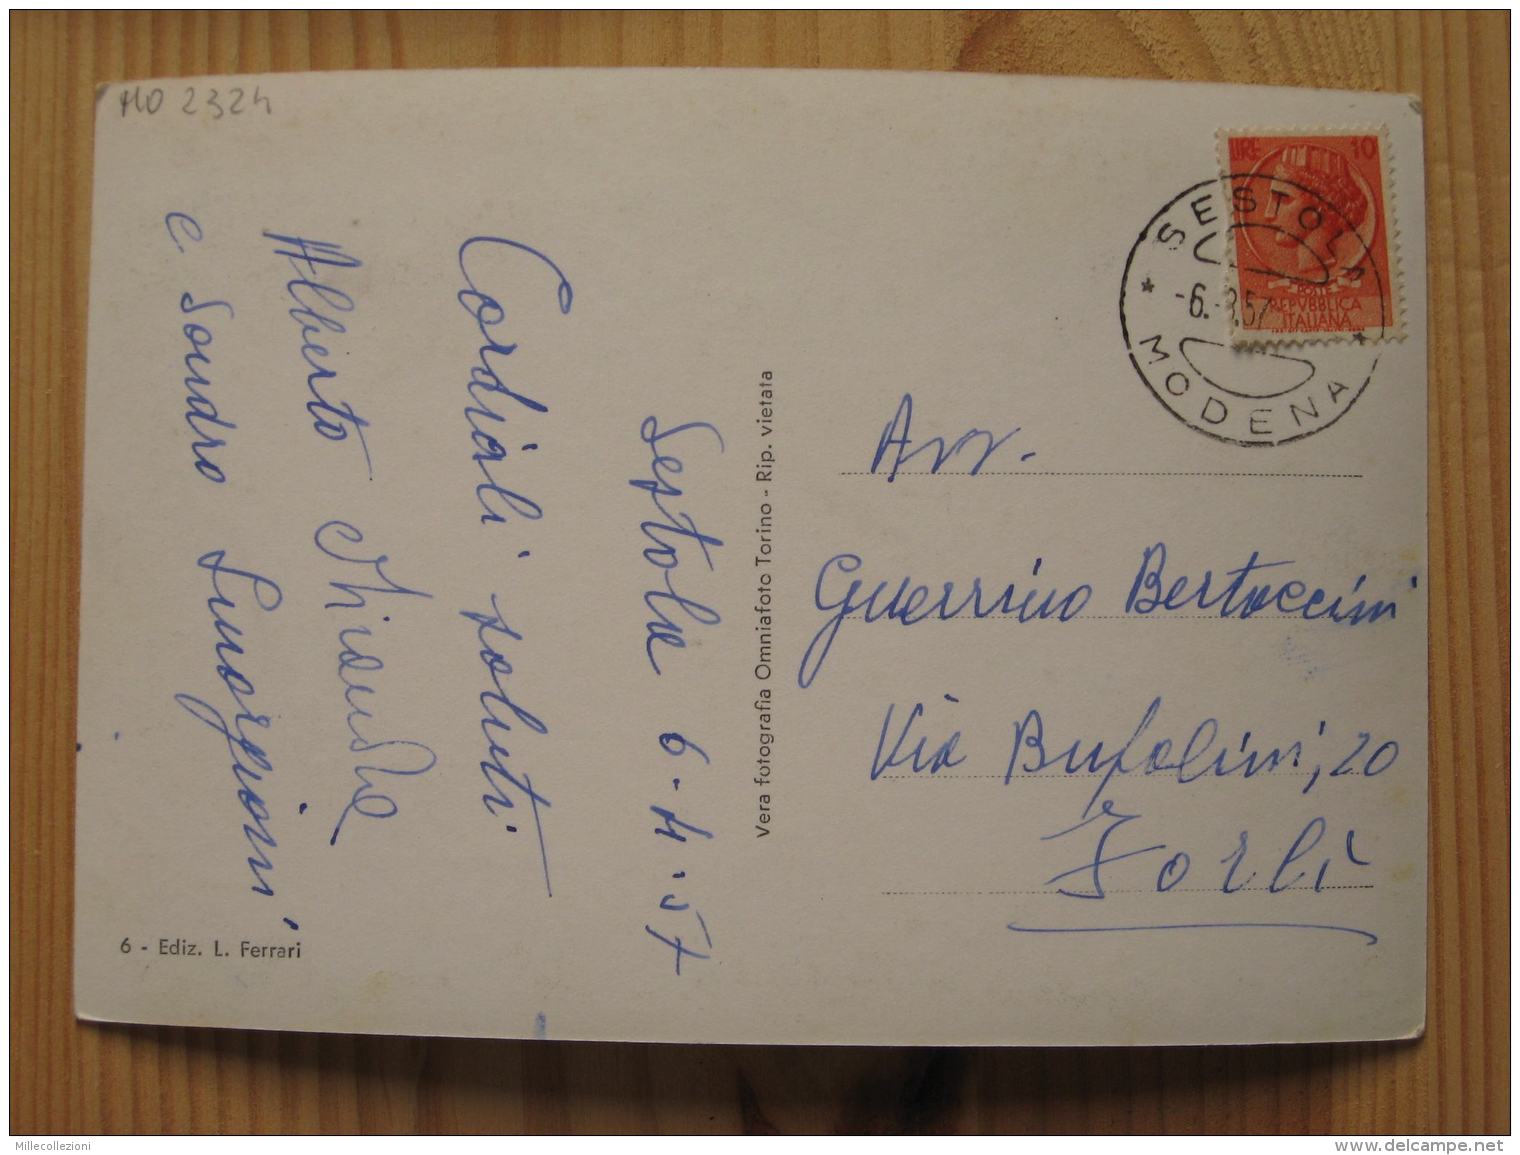 MO 2324
LIRE 10
POSTE
REPVBBLICA
ITALIANA
SESTOLA
-6.-3.57
MODENA
Sestola 6-4-57
Cordiali saluti
Alberto
e Sandro
Vera fotografia Omniafoto Torino - Rip. vietata
Avv.
Guerrino Bertaccini
Via Bufalini, 20
Forlì
6 - Ediz. L. Ferrari
Millecollezioni
www.delcampe.net